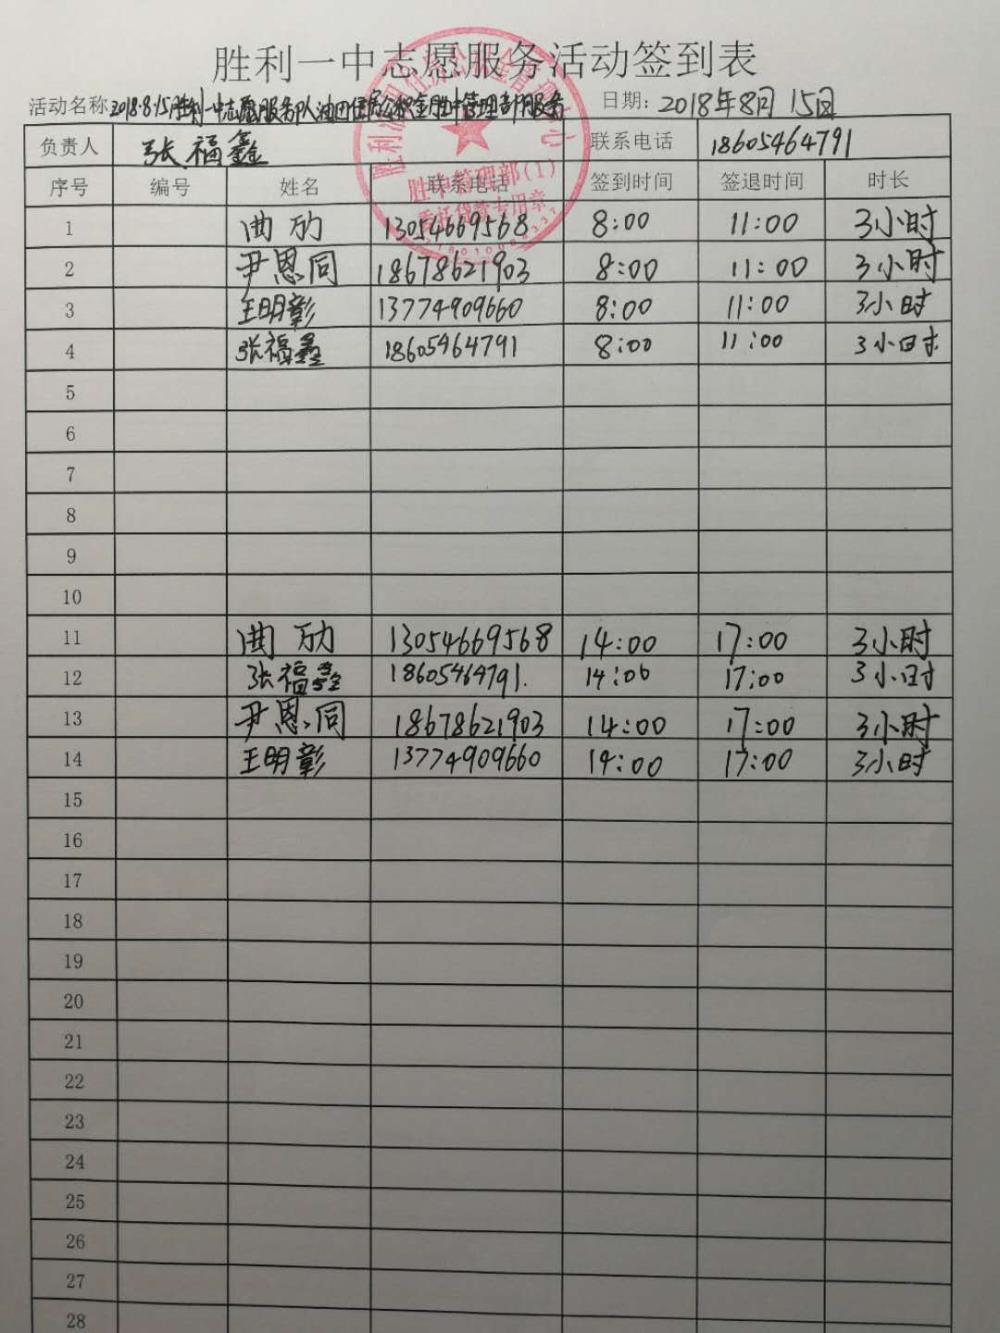 胜利一中志愿服务活动签到表
活动名称:2018.8.15胜利一中志愿服务队油田住房公积金胜中管理部服务 日期: 2018年8月15日
负责人 张福鑫 联系电话 18605464791
序号 编号 姓名 联系电话 签到时间 签退时间 时长
1 曲 13054669568 8:00 11:00 3小时
2 尹恩同 18678621903 8:00 11:00 3小时
3 王明彰 13774909660 8:00 11:00 3小时
4 张福鑫 18605464791 8:00 11:00 3小时
5
6
7
8
9
10
11 曲 13054669568 14:00 17:00 3小时
12 张福鑫 18605464791. 14:00 17:00 3小时
13 尹恩同 18678621903 14:00 17:00 3小时
14 王明彰 13774909660 14:00 17:00 3小时
15
16
17
18
19
20
21
22
23
24
25
26
27
28
胜中管理部(1)
委托贷款专用章